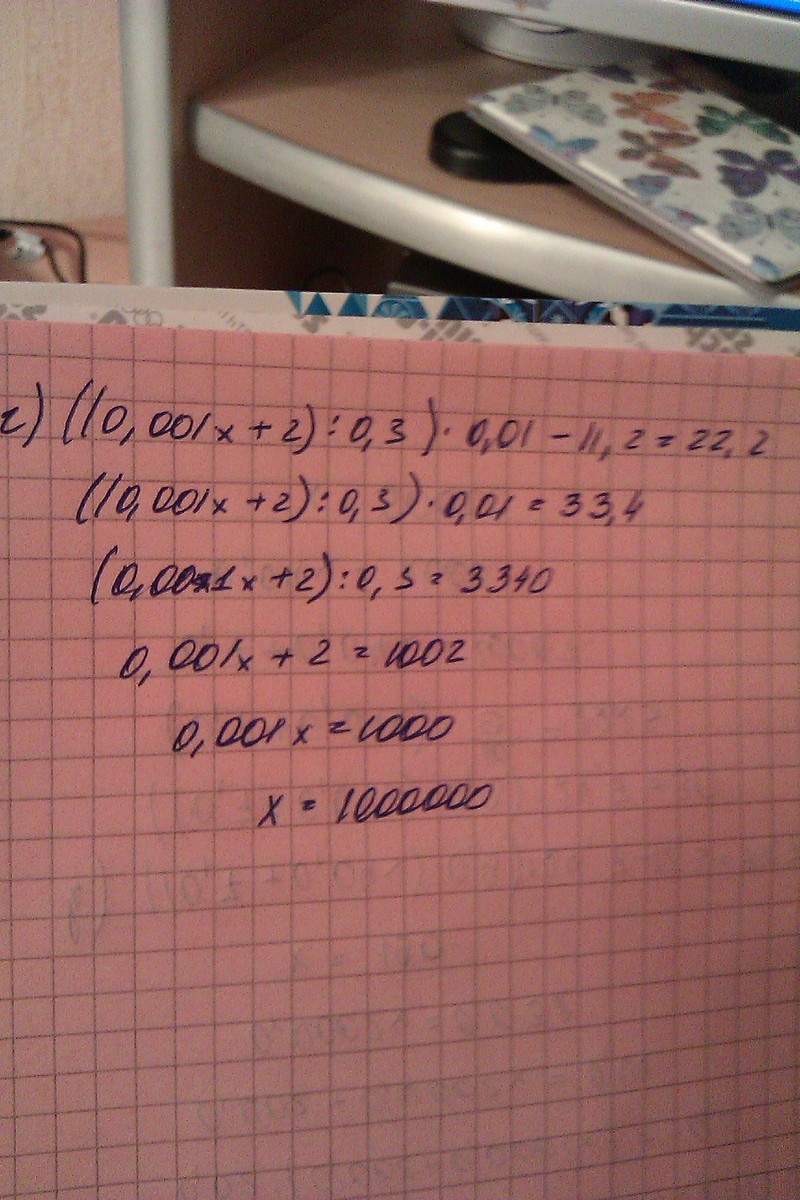 г) ((0,001x + 2) : 0,3) · 0,01 - 11,2 = 22,2
((0,001x + 2) : 0,3) · 0,01 = 33,4
(0,001x + 2) : 0,3 = 3340
0,001x + 2 = 1002
0,001x = 1000
x = 1000000